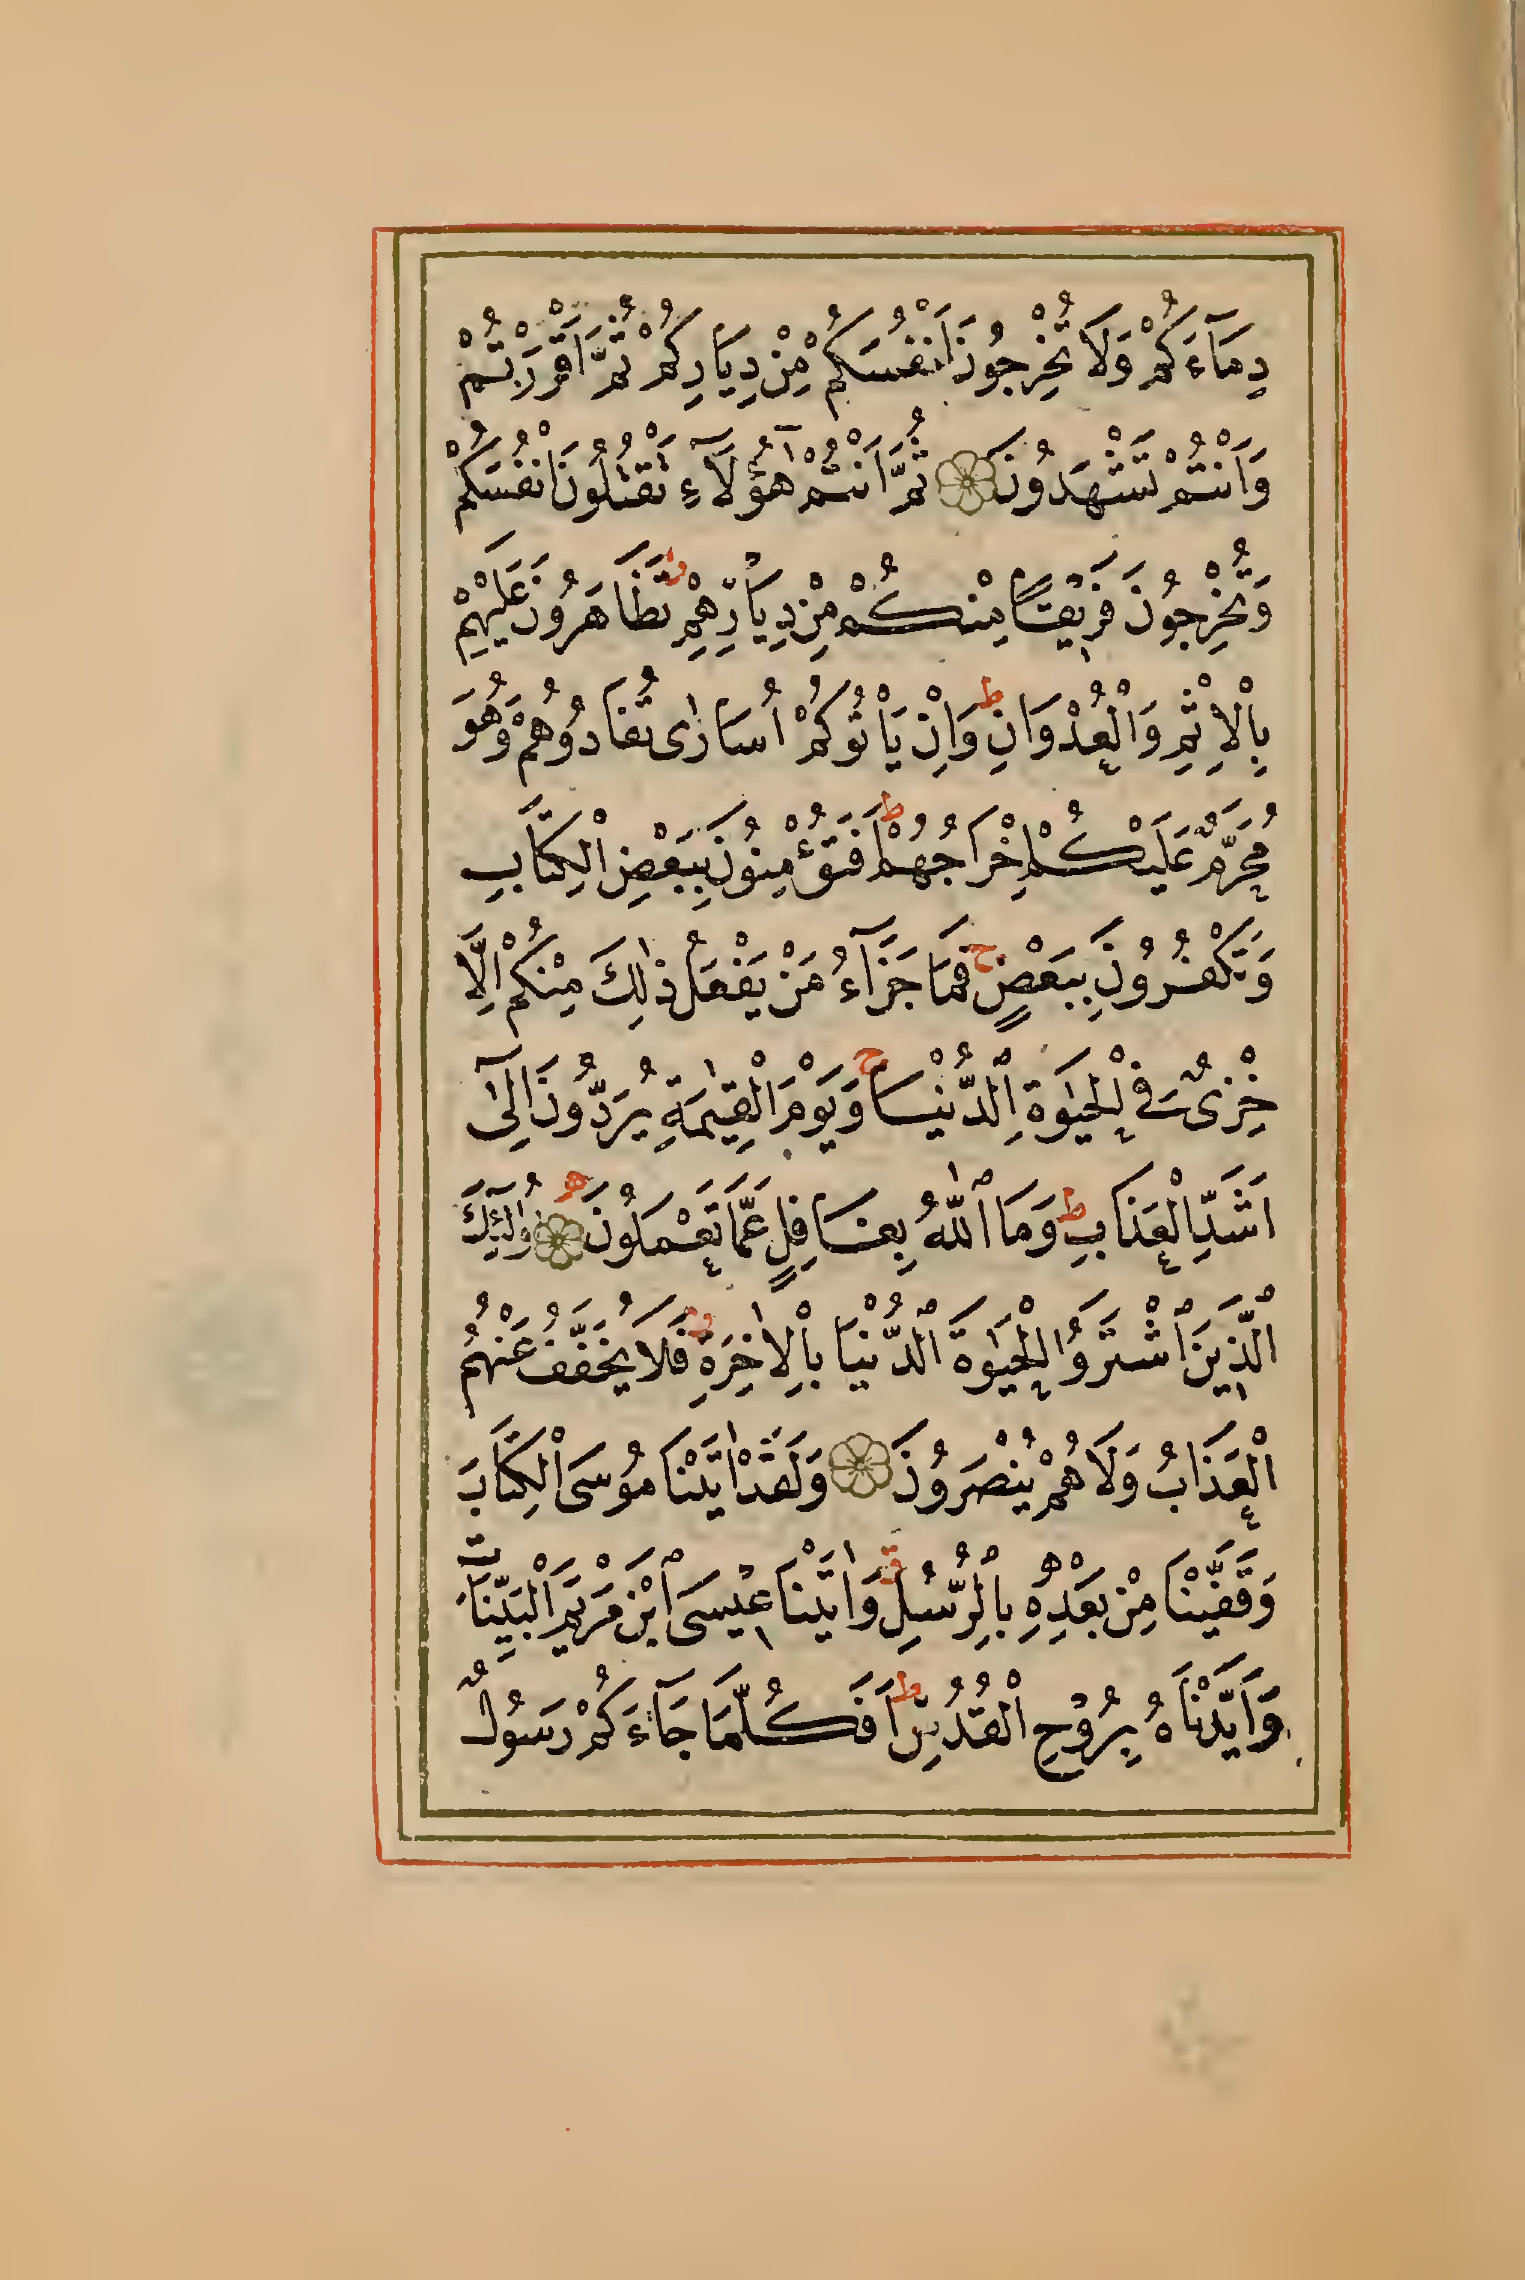 دِمَآءَكُمْ وَلَا تُخْرِجُونَ اَنْفُسَكُمْ مِنْ دِيَارِكُمْ ثُمَّ اَقْرَرْتُمْ
وَاَنْتُمْ تَشْهَدُونَ ثُمَّ اَنْتُمْ هٰٓؤُلَآءِ تَقْتُلُونَ اَنْفُسَكُمْ
وَتُخْرِجُونَ فَرِيْقًا مِنْكُمْ مِنْ دِيَارِهِمْ تَظَاهَرُونَ عَلَيْهِمْ
بِالْاِثْمِ وَالْعُدْوَانِ ط وَاِنْ يَاْتُوكُمْ اُسَارٰى تُفَادُوهُمْ وَهُوَ
مُحَرَّمٌ عَلَيْكُمْ اِخْرَاجُهُمْ ط اَفَتُؤْمِنُونَ بِبَعْضِ الْكِتَابِ
وَتَكْفُرُونَ بِبَعْضٍ ج فَمَا جَزَآءُ مَنْ يَفْعَلُ ذٰلِكَ مِنْكُمْ اِلَّا
خِزْىٌ فِى الْحَيٰوةِ الدُّنْيَا ج وَيَوْمَ الْقِيٰمَةِ يُرَدُّونَ اِلٰٓى
اَشَدِّ الْعَذَابِ ط وَمَا اللّٰهُ بِغَافِلٍ عَمَّا تَعْمَلُونَ اُولٰٓئِكَ
الَّذِينَ اشْتَرَوُا الْحَيٰوةَ الدُّنْيَا بِالْاٰخِرَةِ فَلَا يُخَفَّفُ عَنْهُمُ
الْعَذَابُ وَلَا هُمْ يُنْصَرُونَ وَلَقَدْ اٰتَيْنَا مُوسَى الْكِتَابَ
وَقَفَّيْنَا مِنْ بَعْدِهٖ بِالرُّسُلِ وَاٰتَيْنَا عِيْسَى ابْنَ مَرْيَمَ الْبَيِّنَاتِ
وَاَيَّدْنَاهُ بِرُوْحِ الْقُدُسِ ط اَفَكُلَّمَا جَآءَكُمْ رَسُولٌ